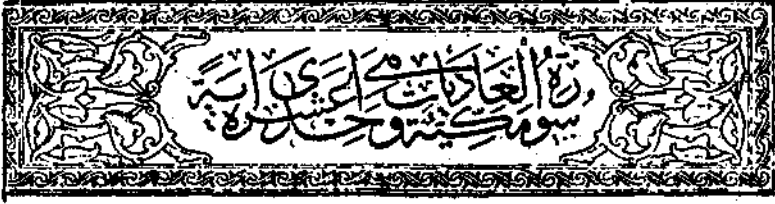 سورة العاديات مكية وهي احدى عشرة اية